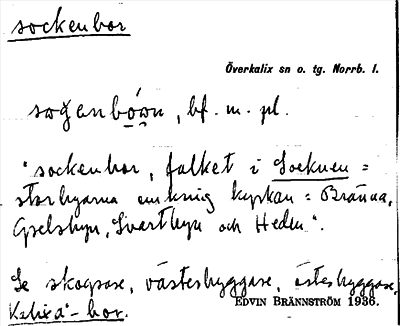 sockenbor
Överkalix sn o. tg. Norrb. l.
bf. m. pl.
"sockenbor, folket i Socknen =
storbyarna omkring kyrkan = Bränna,
Gpelsbyn, Svartbyn och Heden".
Se skogsase, västesbyggase, östesbyggase,
Kalixå-bor.
EDVIN BRÄNNSTRÖM 1936.